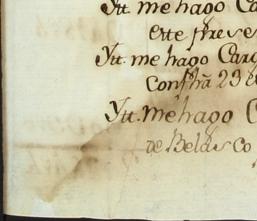 Ytt. me hago Ca
este press e
Ytt. me hago Carg
Conshã 23 e
Ytt. me hago C
de Belasco